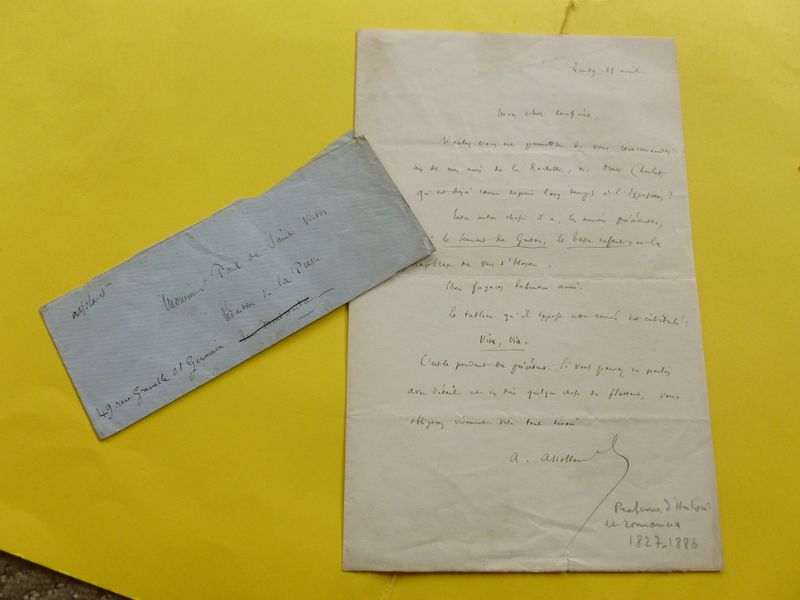 Lundi 25 avril
Mon cher confrère,
Voulez vous me permettre de vous recommander
un de mes amis de la Rochelle, M. Omer Charlet,
qui est déjà connu depuis long-temps à l'Exposition ?
Entre autres choses il a, les années précédentes,
le Serment de Guiton, le Tasse enfant, et la
du vers d'Horace.
Eheu fugaces labuntur anni.
Le tableau qu'il expose cette année est intitulé :
Vita, Via.
C'est le pendant du précédent. Si vous pouvez en parler
avec détail et en dire quelque chose de flatteur, vous
obligerez vivement votre tout dévoué
A. Assollant
Professeur d'histoire
et romancier
1827-1886
assolant
Monsieur Paul de Saint Victor
Rédaction de la Presse
49 rue Grenelle St Germain